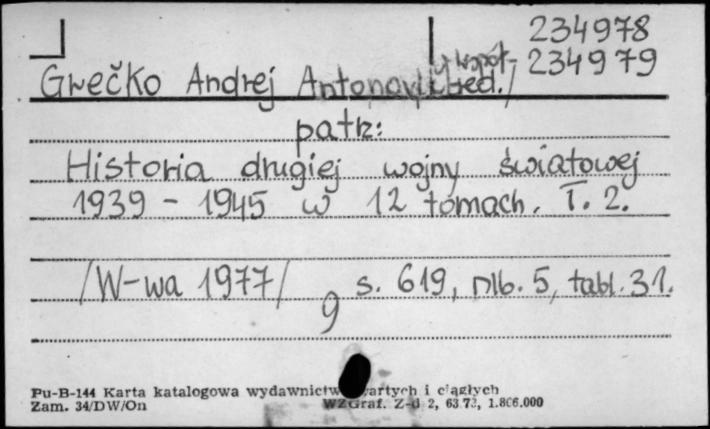 234978
Grečko Andrej Antonovič red./ współ- 234979
patrz:
Historia drugiej wojny światowej
1939 - 1945 w 12 tomach. T. 2.
/W-wa 1977/ s. 619, nlb. 5, tabl. 31.
9
Pu-B-144 Karta katalogowa wydawnictw zwartych i ciągłych
Zam. 34/DW/On WZGraf. Z-d 2, 63.73, 1.806.000